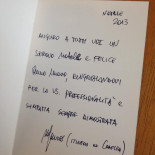 NATALE
2013
AUGURO A TUTTE VOI UN
SERENO NATALE E FELICE
ANNO NUOVO, RINGRAZIANDOVI
PER LA VS PROFESSIONALITÀ E
SIMPATIA SEMPRE DIMOSTRATA